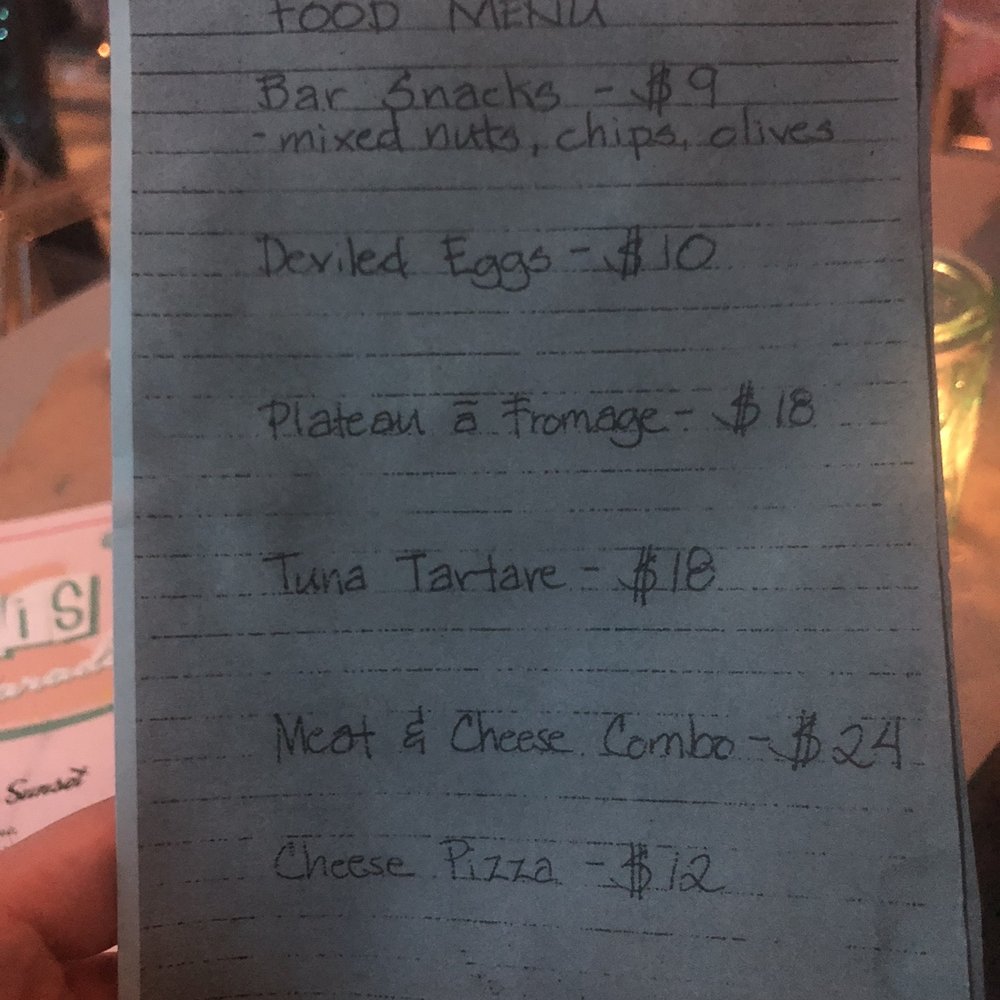 FOOD MENU
Bar Snacks - $9
- mixed nuts, chips, olives
Deviled Eggs - $10
Plateau ā Fromage - $18
Tuna Tartare - $18
Meat & Cheese Combo - $24
Cheese Pizza - $12
is
Sunset